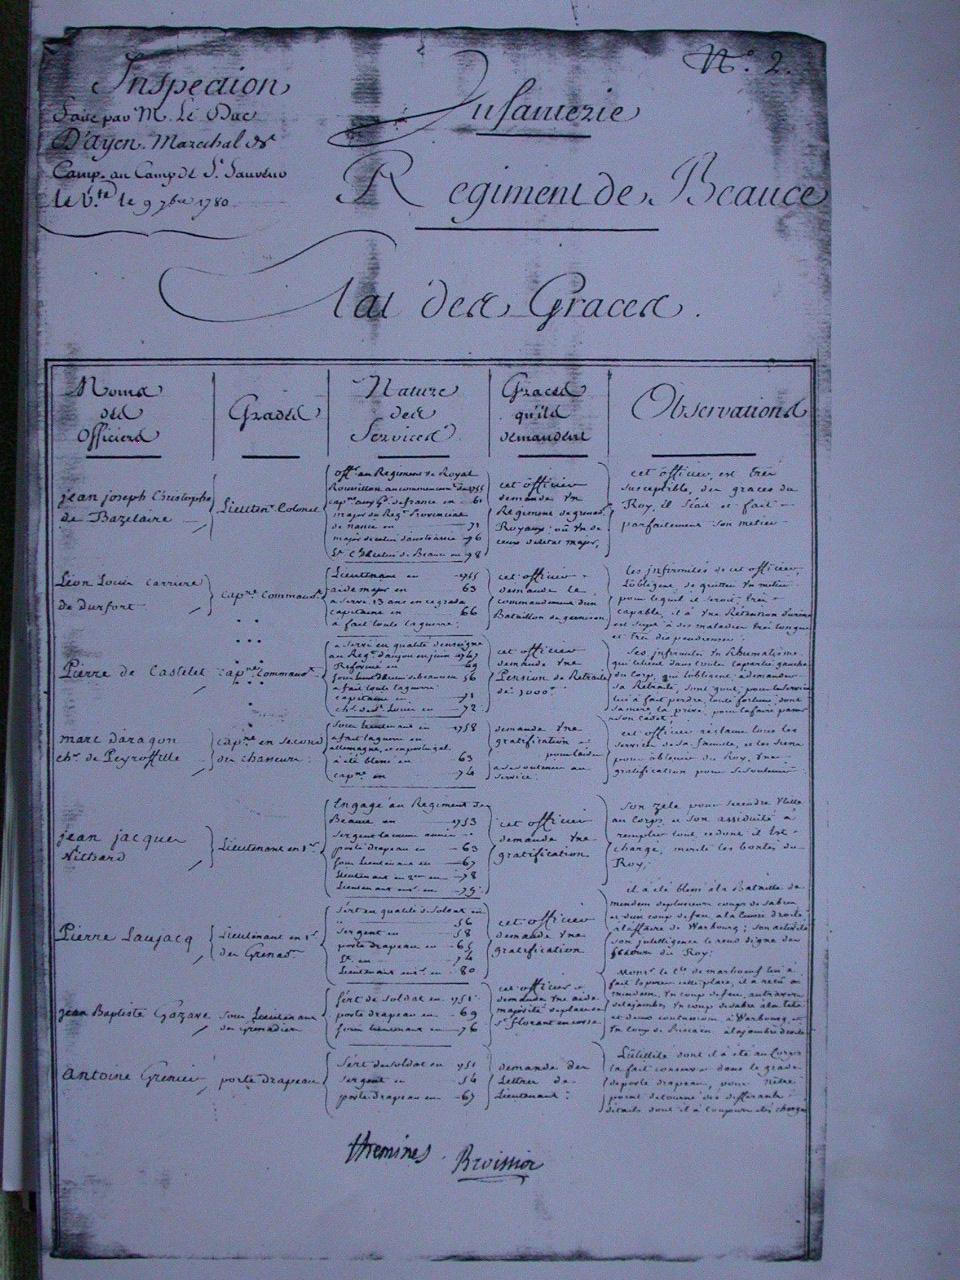 N.° 2.
Inspection
faite par M. Le Duc
D'ayen Marechal de
Camp. au Camp de St. Sauveur
le 9 7bre 1780
Infanterie
Regiment de Beauce
Etat des Graces.
Noms
des
Officiers
Grades
Nature
des
Services
Graces
qu'ils
demandent
Observations
jean joseph Christophe
de Bazelaire
Lieuten.t Colonel
off.er au Regiment de Royal
major du Reg.t Provincial
de nancy en 71
cet officier
demande un
Regiment de grenad.
Royaux ou un de
ceux de letat major,
cet officier, est très
susceptible, des graces du
Roy, il sçait et fait
parfaitement son metier
Léon Louis Carriere
de Durfort
cap.ne Command.t
Lieutenant en 1755
aide major en 63
a servi 13 ans en ce grade
capitaine en 66
a fait toute la guerre.
cet officier
demande le
commandement d'un
Bataillon de garnison
les infirmités de cet officier,
L'obligent, de quitter un metier
pour lequel il seroit très
capable, il a une Retention d'urine
est sujet à des maladies très longues
et très dispendieuses.
Pierre de Castelet
cap.ne Command.t
a servi en qualité d'enseigne
au Reg.t d'anjou en juin 1747
Reformé en 49
a fait toute la guerre
capitaine en 71
ch.er de St. Louis en 72
cet officier
demande une
Pension de Retraite
de 1000.tt
Ses infirmités un Rhumatisme
qui le tient dans toute la partie gauche
du Corps, qui l'obligent a demander
sa Retraite, sont
lui a fait perdre toute fortune dont
sa mere l'a privé, pour la faire passer
a son cadet.
marc daragon
ch.er de Peyroffille
cap.ne en second
de chasseurs.
sous Lieutenant en 1758
a fait la guerre en
allemagne, et en portugal
a été blessé en 63
cap.ne en 74
demande une
gratification
pour l'aider
a se soutenir au
service.
cet officier reclame tous les
services de sa famille, et les siens
pour obtenir du Roy, une
gratification pour se soutenir.
jean jacques
Nithard
Lieutenant en 1.er
Engagé au Regiment de
Beauce en 1753
Sergent la meme année
porte drapeau en 63
sous Lieutenant en 67
Lieutenant en 2.me en 78
Lieutenant en 1.er en 79
cet officier
demande une
gratification
Son zele pour se rendre Utile
au Corps, et son assiduité à
remplir tout, ce dont il Est
chargé, merite les bontés du
Roy.
Pierre Laujacq
Lieutenant en 1.er
des Grenad.rs
sert en qualité de soldat en
56
sergent en 58
porte drapeau en 65
74
Lieutenant en 1.er en 80
cet officier
demande une
gratification
il a été blessé à la Bataille de
minden de plusieurs coups de sabres
et d'un coup de feu, à la cuisse droite
a l'affaire de Warbourg; son activité
son intelligence le rend digne des
du Roy.
jean Baptiste Gazave
sous Lieutenant
de Grenadier
sert de soldat en 1751
porte drapeau en 69
sous Lieutenant en 76
cet officier
demande une aide
majorité de place
St. florent en corse
Mons.r le C.te de marboeuf lui a
fait esperer cette place, il a reçu a
minden, un coup de feu, au travers
des jambes, un coup de sabre a la tete
et deux contusions, à Warbourg et
a la jambe droite
Antoine Grenier
porte drapeau
sert de soldat en 1751
sergent en 56
porte drapeau en 67
demande des
Lettres de
Lieutenant.
L'utilité dont il a été au Corps
la fait conserver dans le grade
de porte drapeau, pour n'être
point detourné des differents
details dont il a toujours été chargé
themines. Broissior